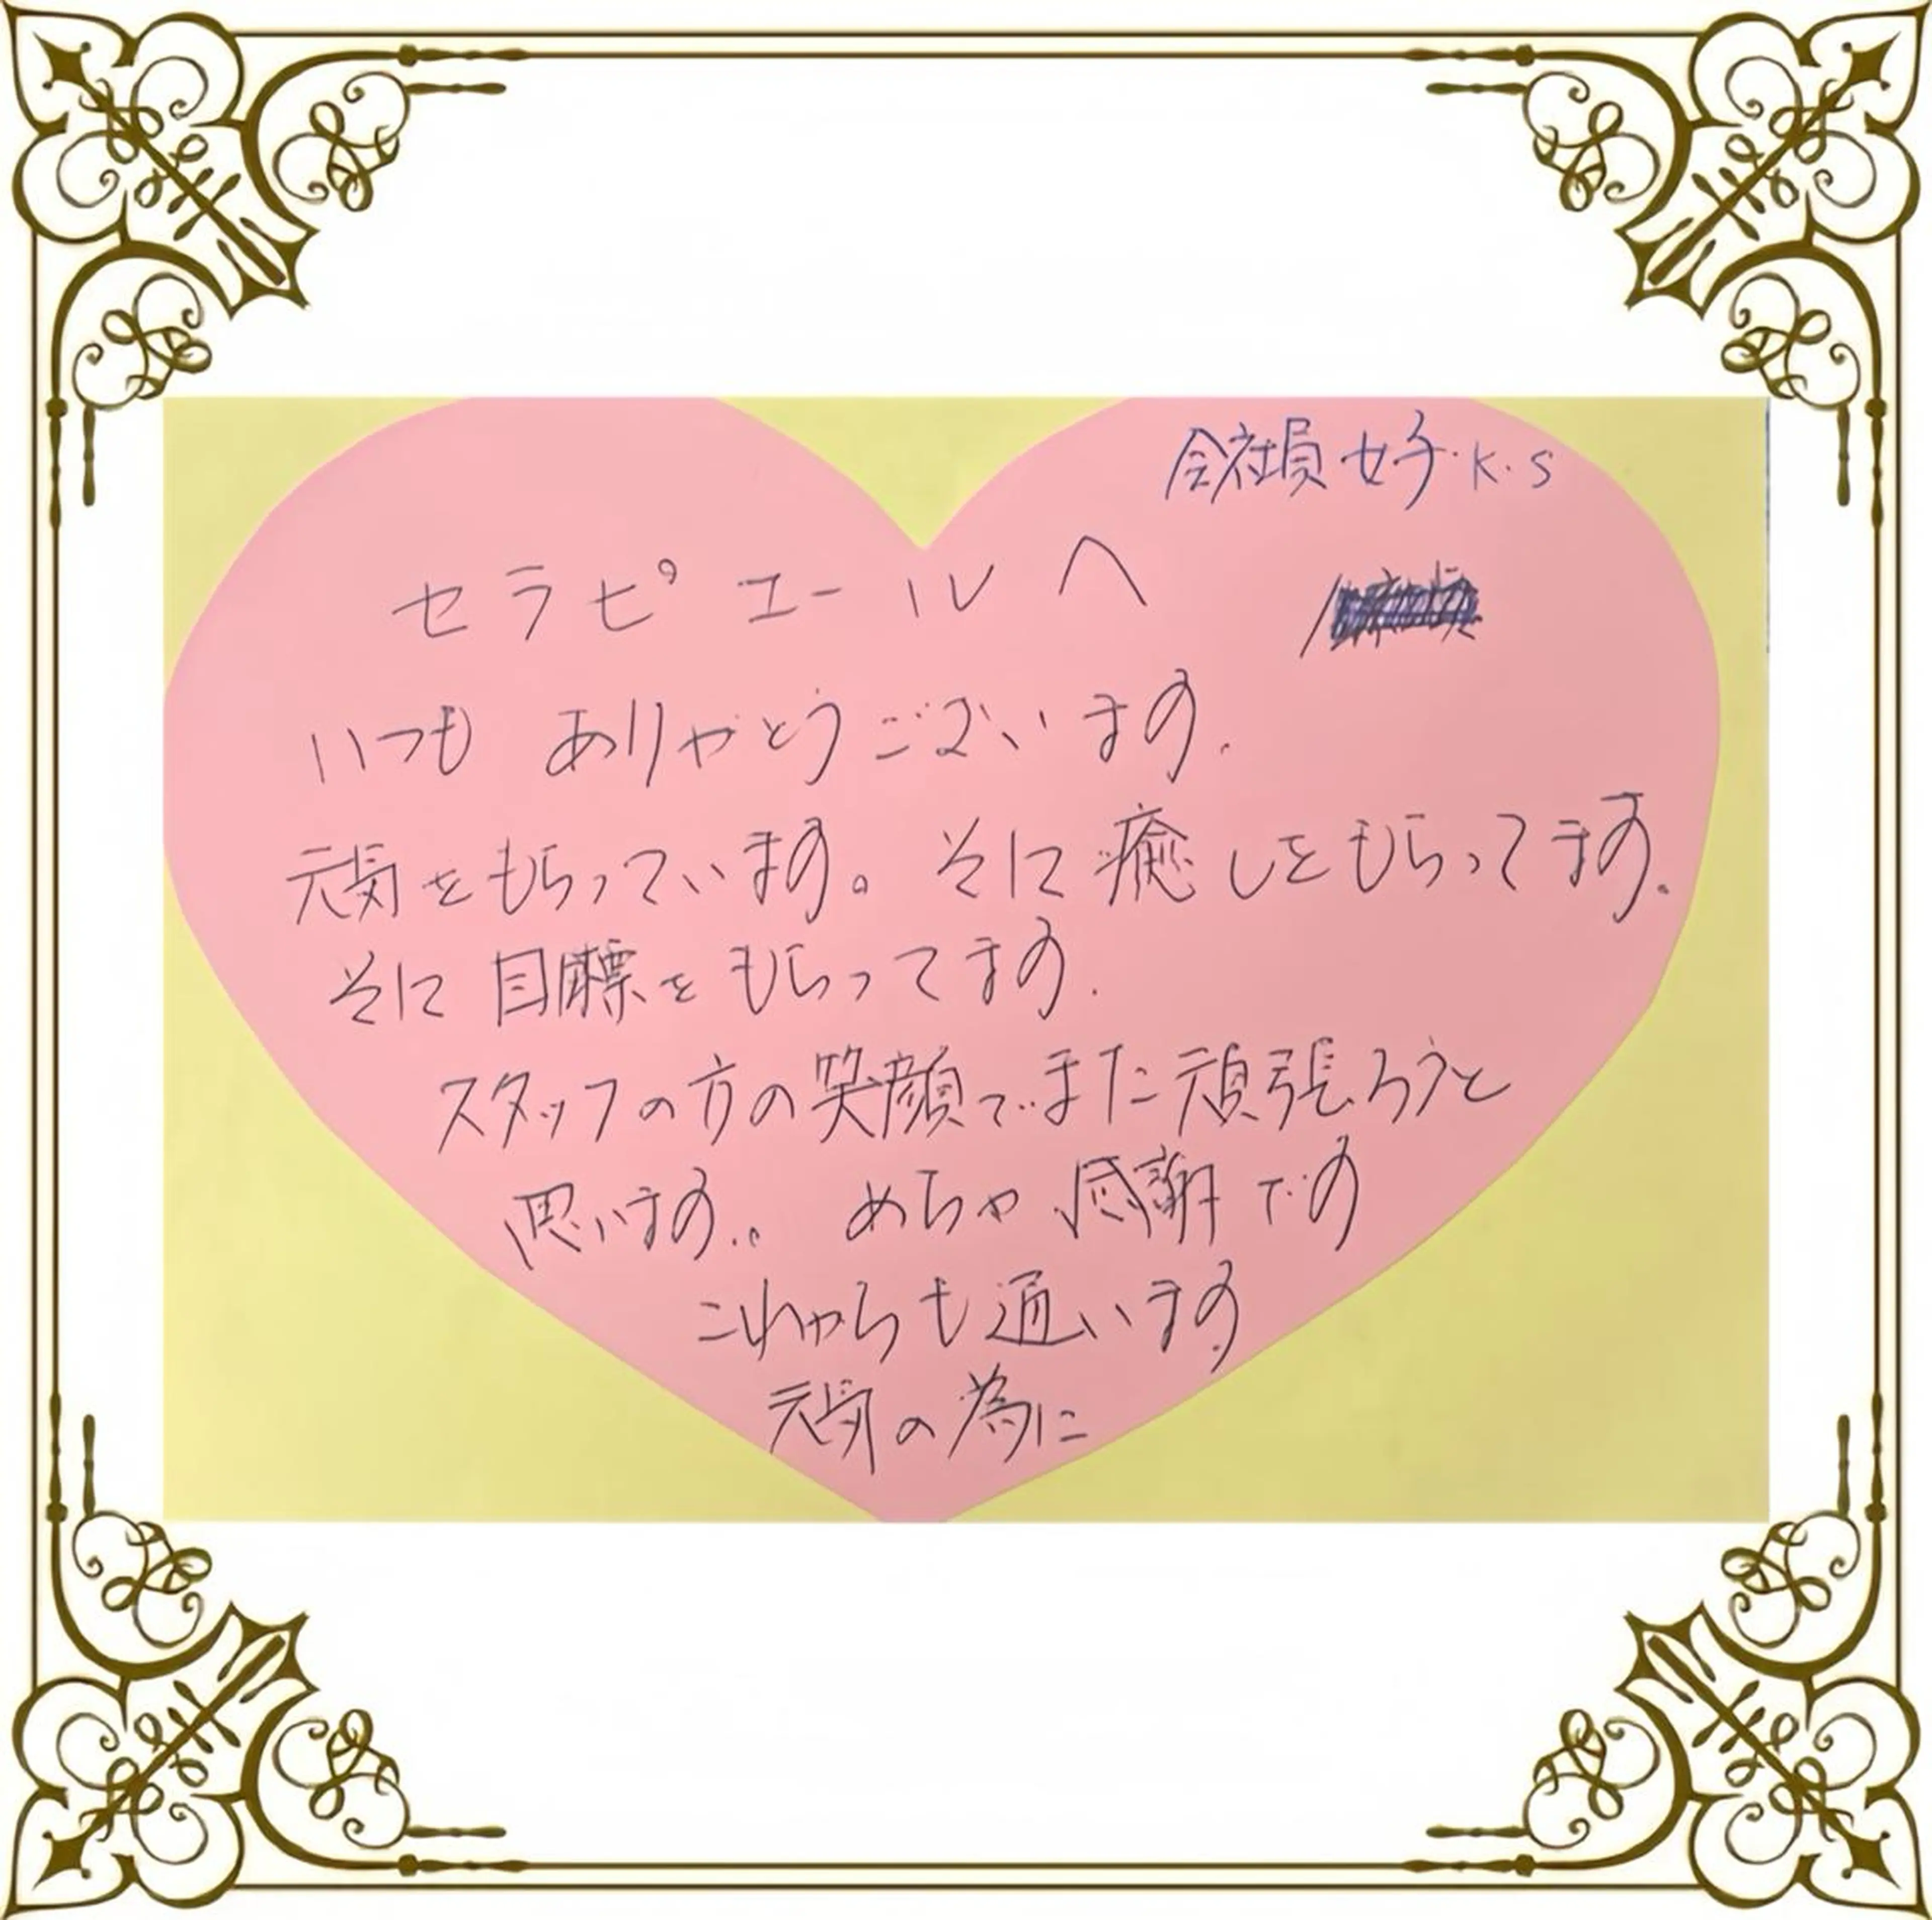 会社員 女子・K・S
セラピエールへ
いつも ありがとうございます.
元気をもらっています。そに癒しをもらってます。
そに目標をもらってます.
スタッフの方の笑顔でまた頑張ろうと
思います。。 めちゃ感謝です
これからも通います
元気の為に